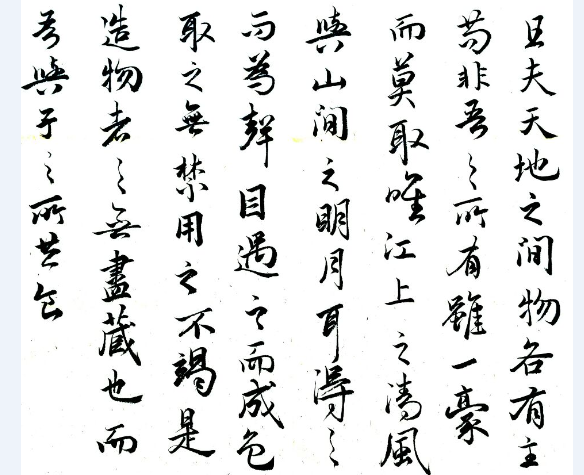 且夫天地之間物各有主
苟非吾之所有雖一豪
而莫取唯江上之清風
與山間之明月耳得之
而為聲目遇之而成色
取之無禁用之不竭是
造物者之無盡藏也而
吾與子之所共食